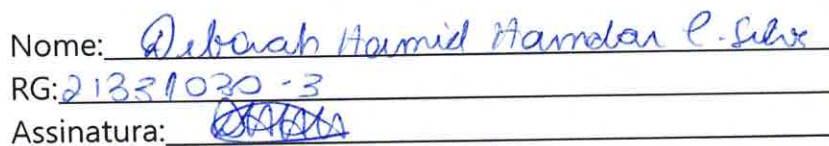 Nome: Deborah Hamid Hamdan C. Silva
RG: 21331030-3
Assinatura: